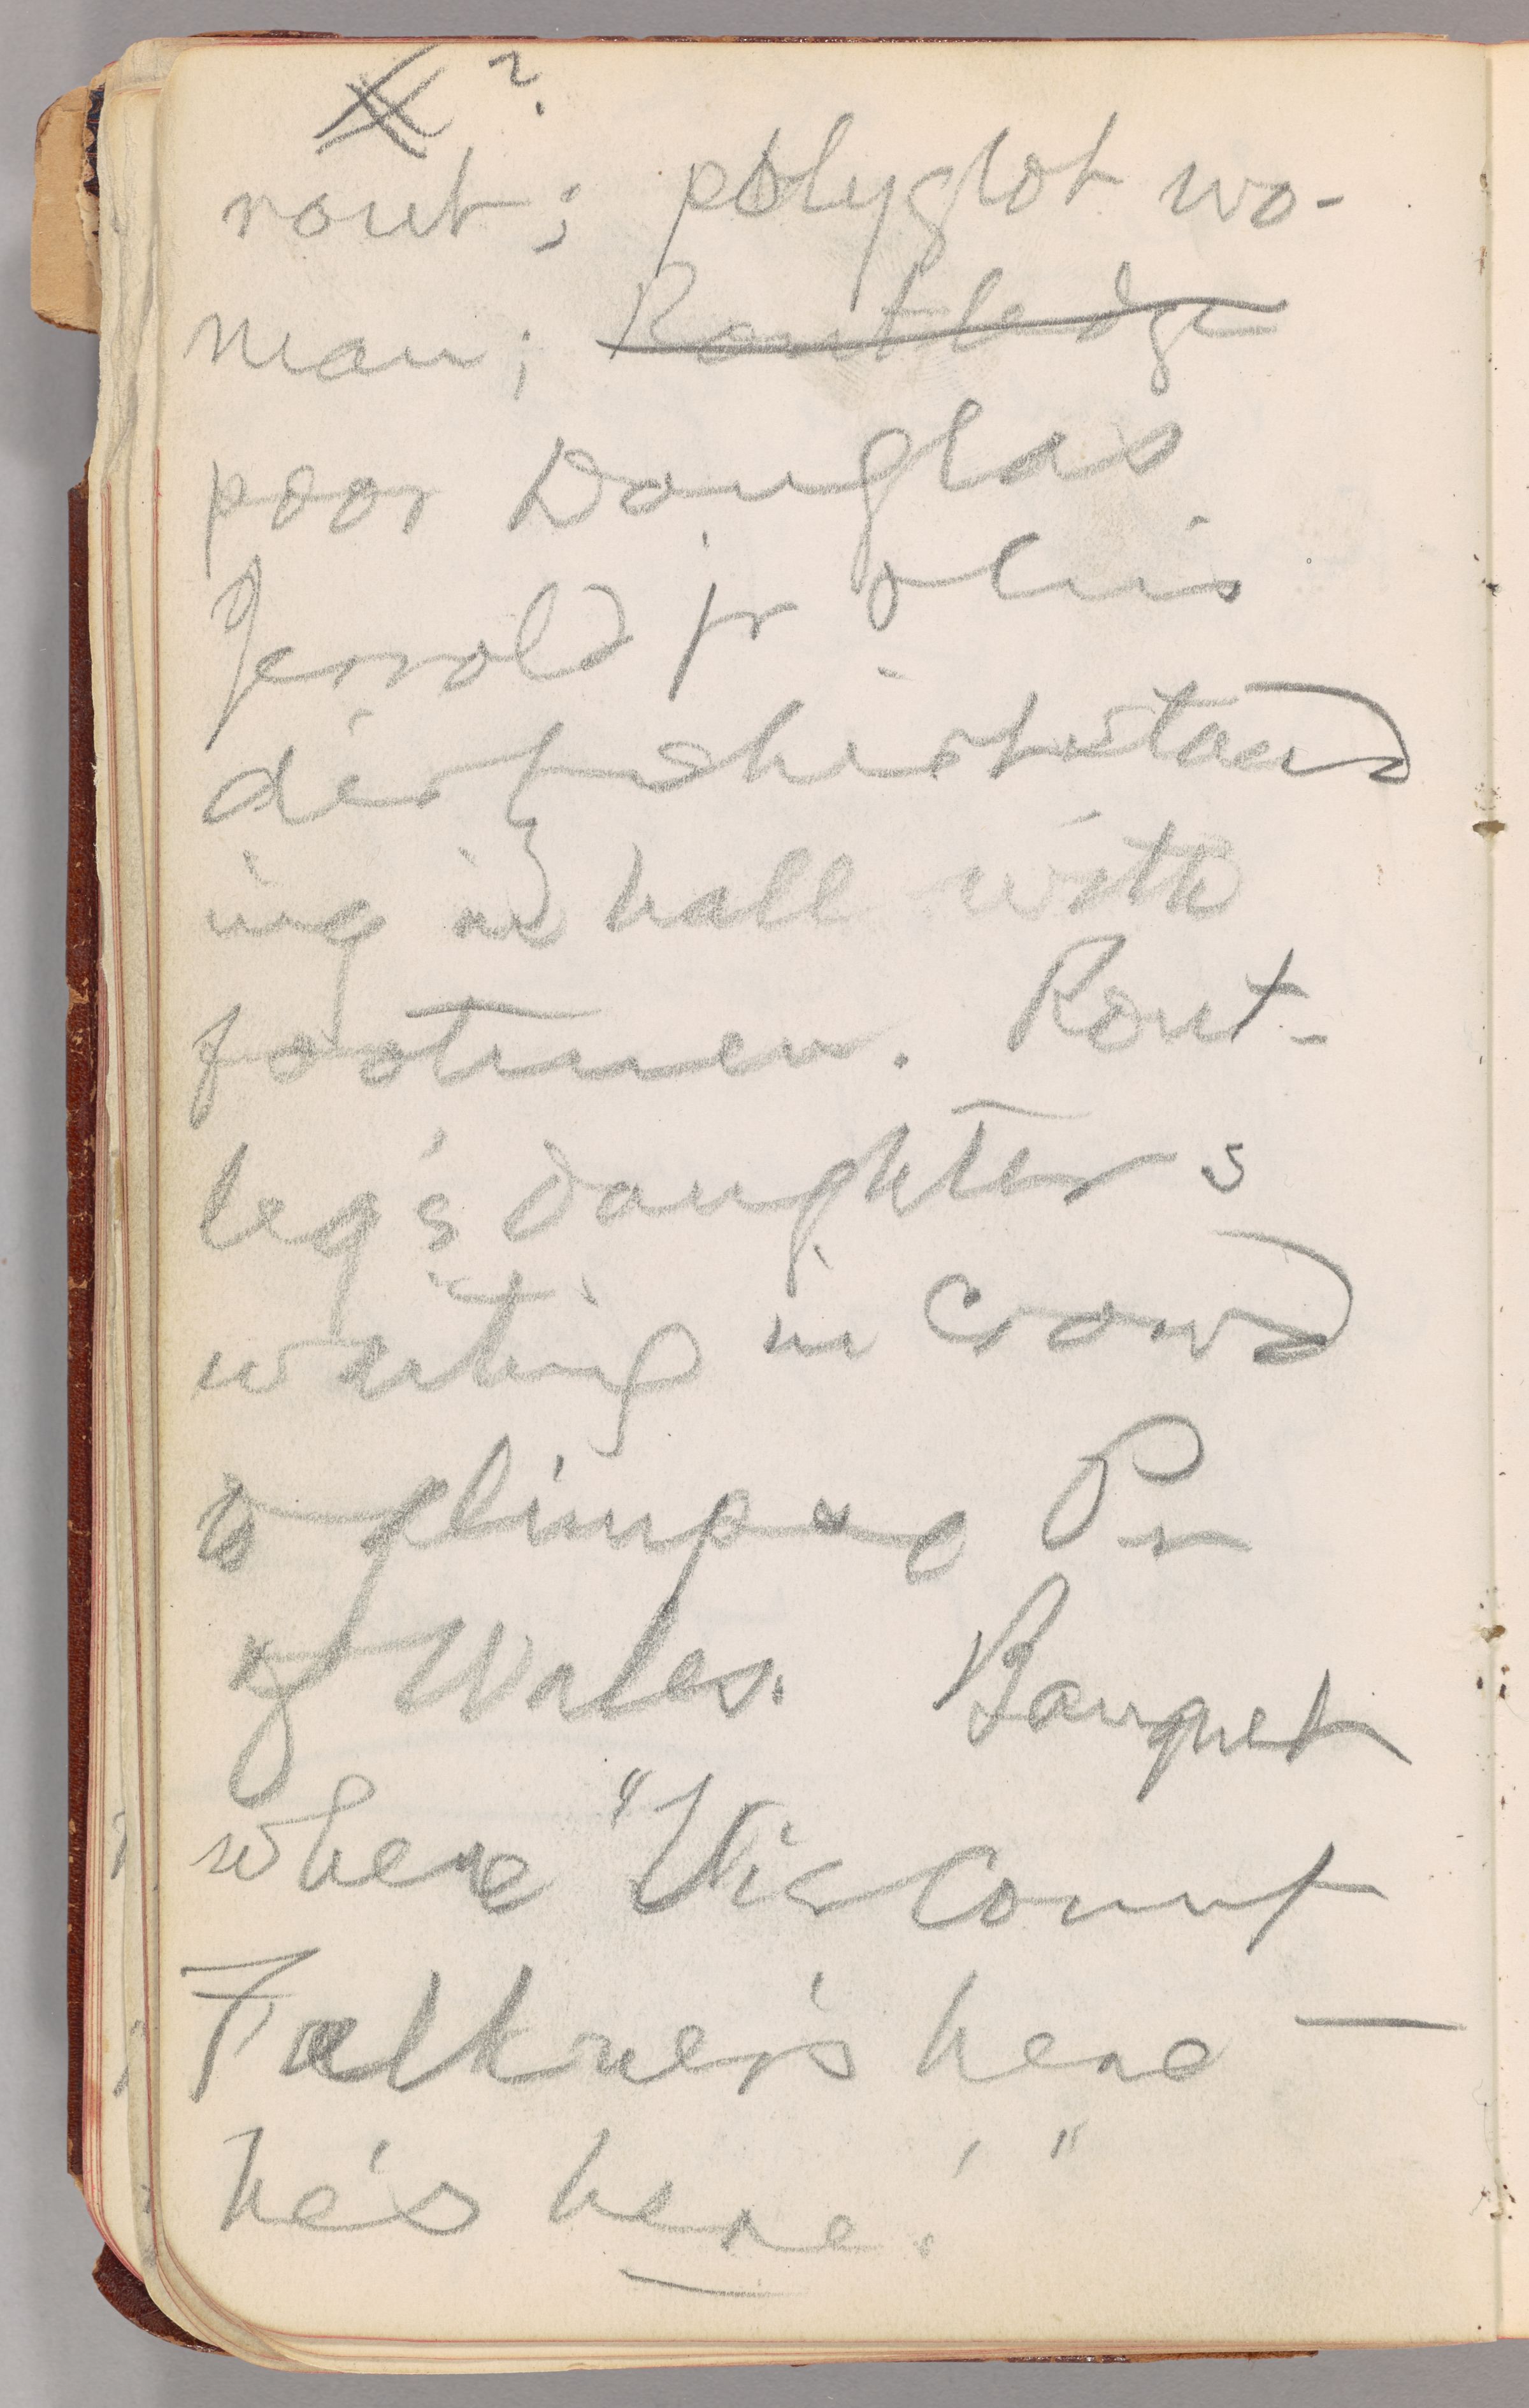 ?
rout; polyglot wo-
man; ~~Routledge~~
poor Douglas
Jerrold jr & his
dirty shirt stand
ing in hall with
footmen. Rout-
leg's daughters
waiting in crowd
to glimpse Pr
of Wales. Banquet
where "Viscount
Falkner's here —
he's here!"